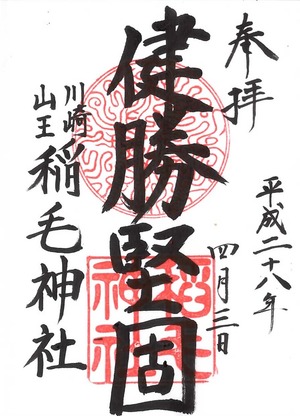 奉拝
平成二十八年
四月三日
健勝堅固
川崎
山王
稲毛神社